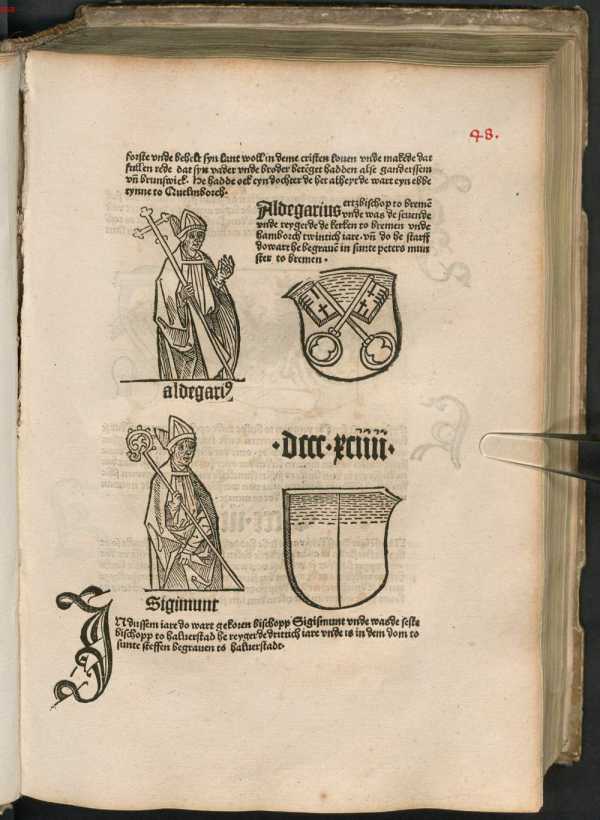 48.
forste vnde behelt syn lant woll in deme cristen louen vnde makede dat
fullen rede dat syn vader vnde broder betöget hadden alse gandersem
vn̄ brunswick. He hadde ock eyn dochter de het alheyt de wart eyn ebbe
tynne to Quelinborch.
Aldegarius ertzbischop to bremē
vnde was de seuende
vnde reygerde de kerken to bremen vnde
hamborch twintich iare. vn̄ do he starff
do wart he begrauē in sunte peters mun
ster to bremen.
aldegari⁹
.dccc.xciiii.
Sigimunt
IN dussem iare do wart gekoren bischopp Sigismunt vnde was de seste
bischopp to haluerstad he reygerde drittich iare vnde is in dem dom to
sunte steffen begrauen to haluerstadt.